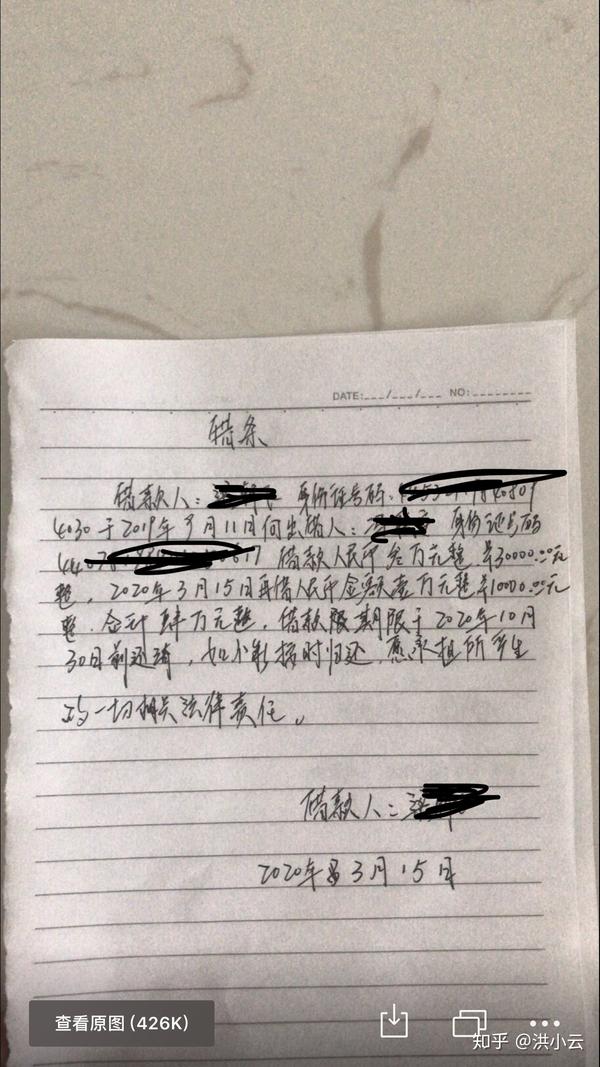 DATE: / / NO:
借条
借款人: 身份证号码:
4030于2019年3月11日向出借人: 身份证号码
借款人民币叁万元整 ¥30000.00元
整，2020年3月15日再借人民币金额壹万元整¥10000.00元
整.合计肆万元整，借款限期限于2020年10月
30日前还清，如不能按时归还，愿承担所产生
的一切相关法律责任。
借款人:
2020年 3月15日
查看原图 (426K)
知乎 @洪小云